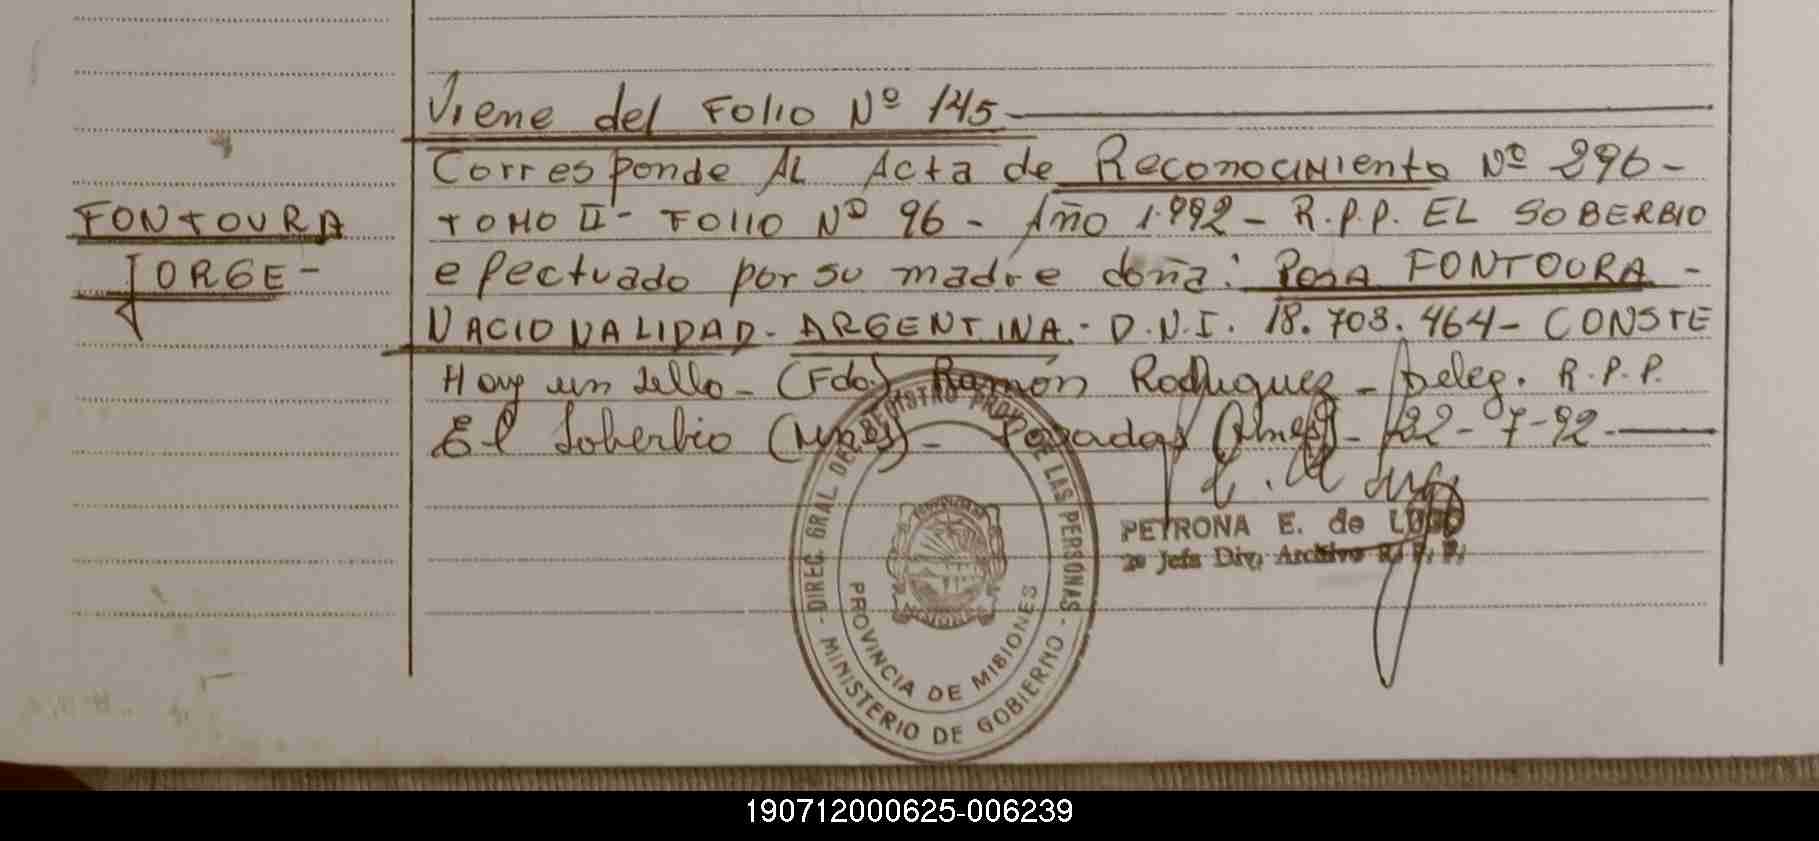 Viene del Folio Nº 145
Corresponde AL Acta de Reconocimiento Nº 296-
FONTOURA
TOMO II- Folio Nº 96 - Año 1.992- R.P.P. EL SOBERBIO
JORGE-
efectuado por su madre doña: Rosa FONTOURA-
NACIONALIDAD- ARGENTINA- D.N.I. 18.703.464- CONSTE
Hay un sello- (Fdo.) Ramón Rodriguez- Deleg. R.P.P.
El Soberbio (Mnes)- Posadas (Mnes)- 22-7-92
PETRONA E. de LUGO
2º Jefa Div. Archivo R. P. P.
DIREC. GRAL. DEL REGISTRO PROV. DE LAS PERSONAS
PROVINCIA DE MISIONES
MINISTERIO DE GOBIERNO
190712000625-006239